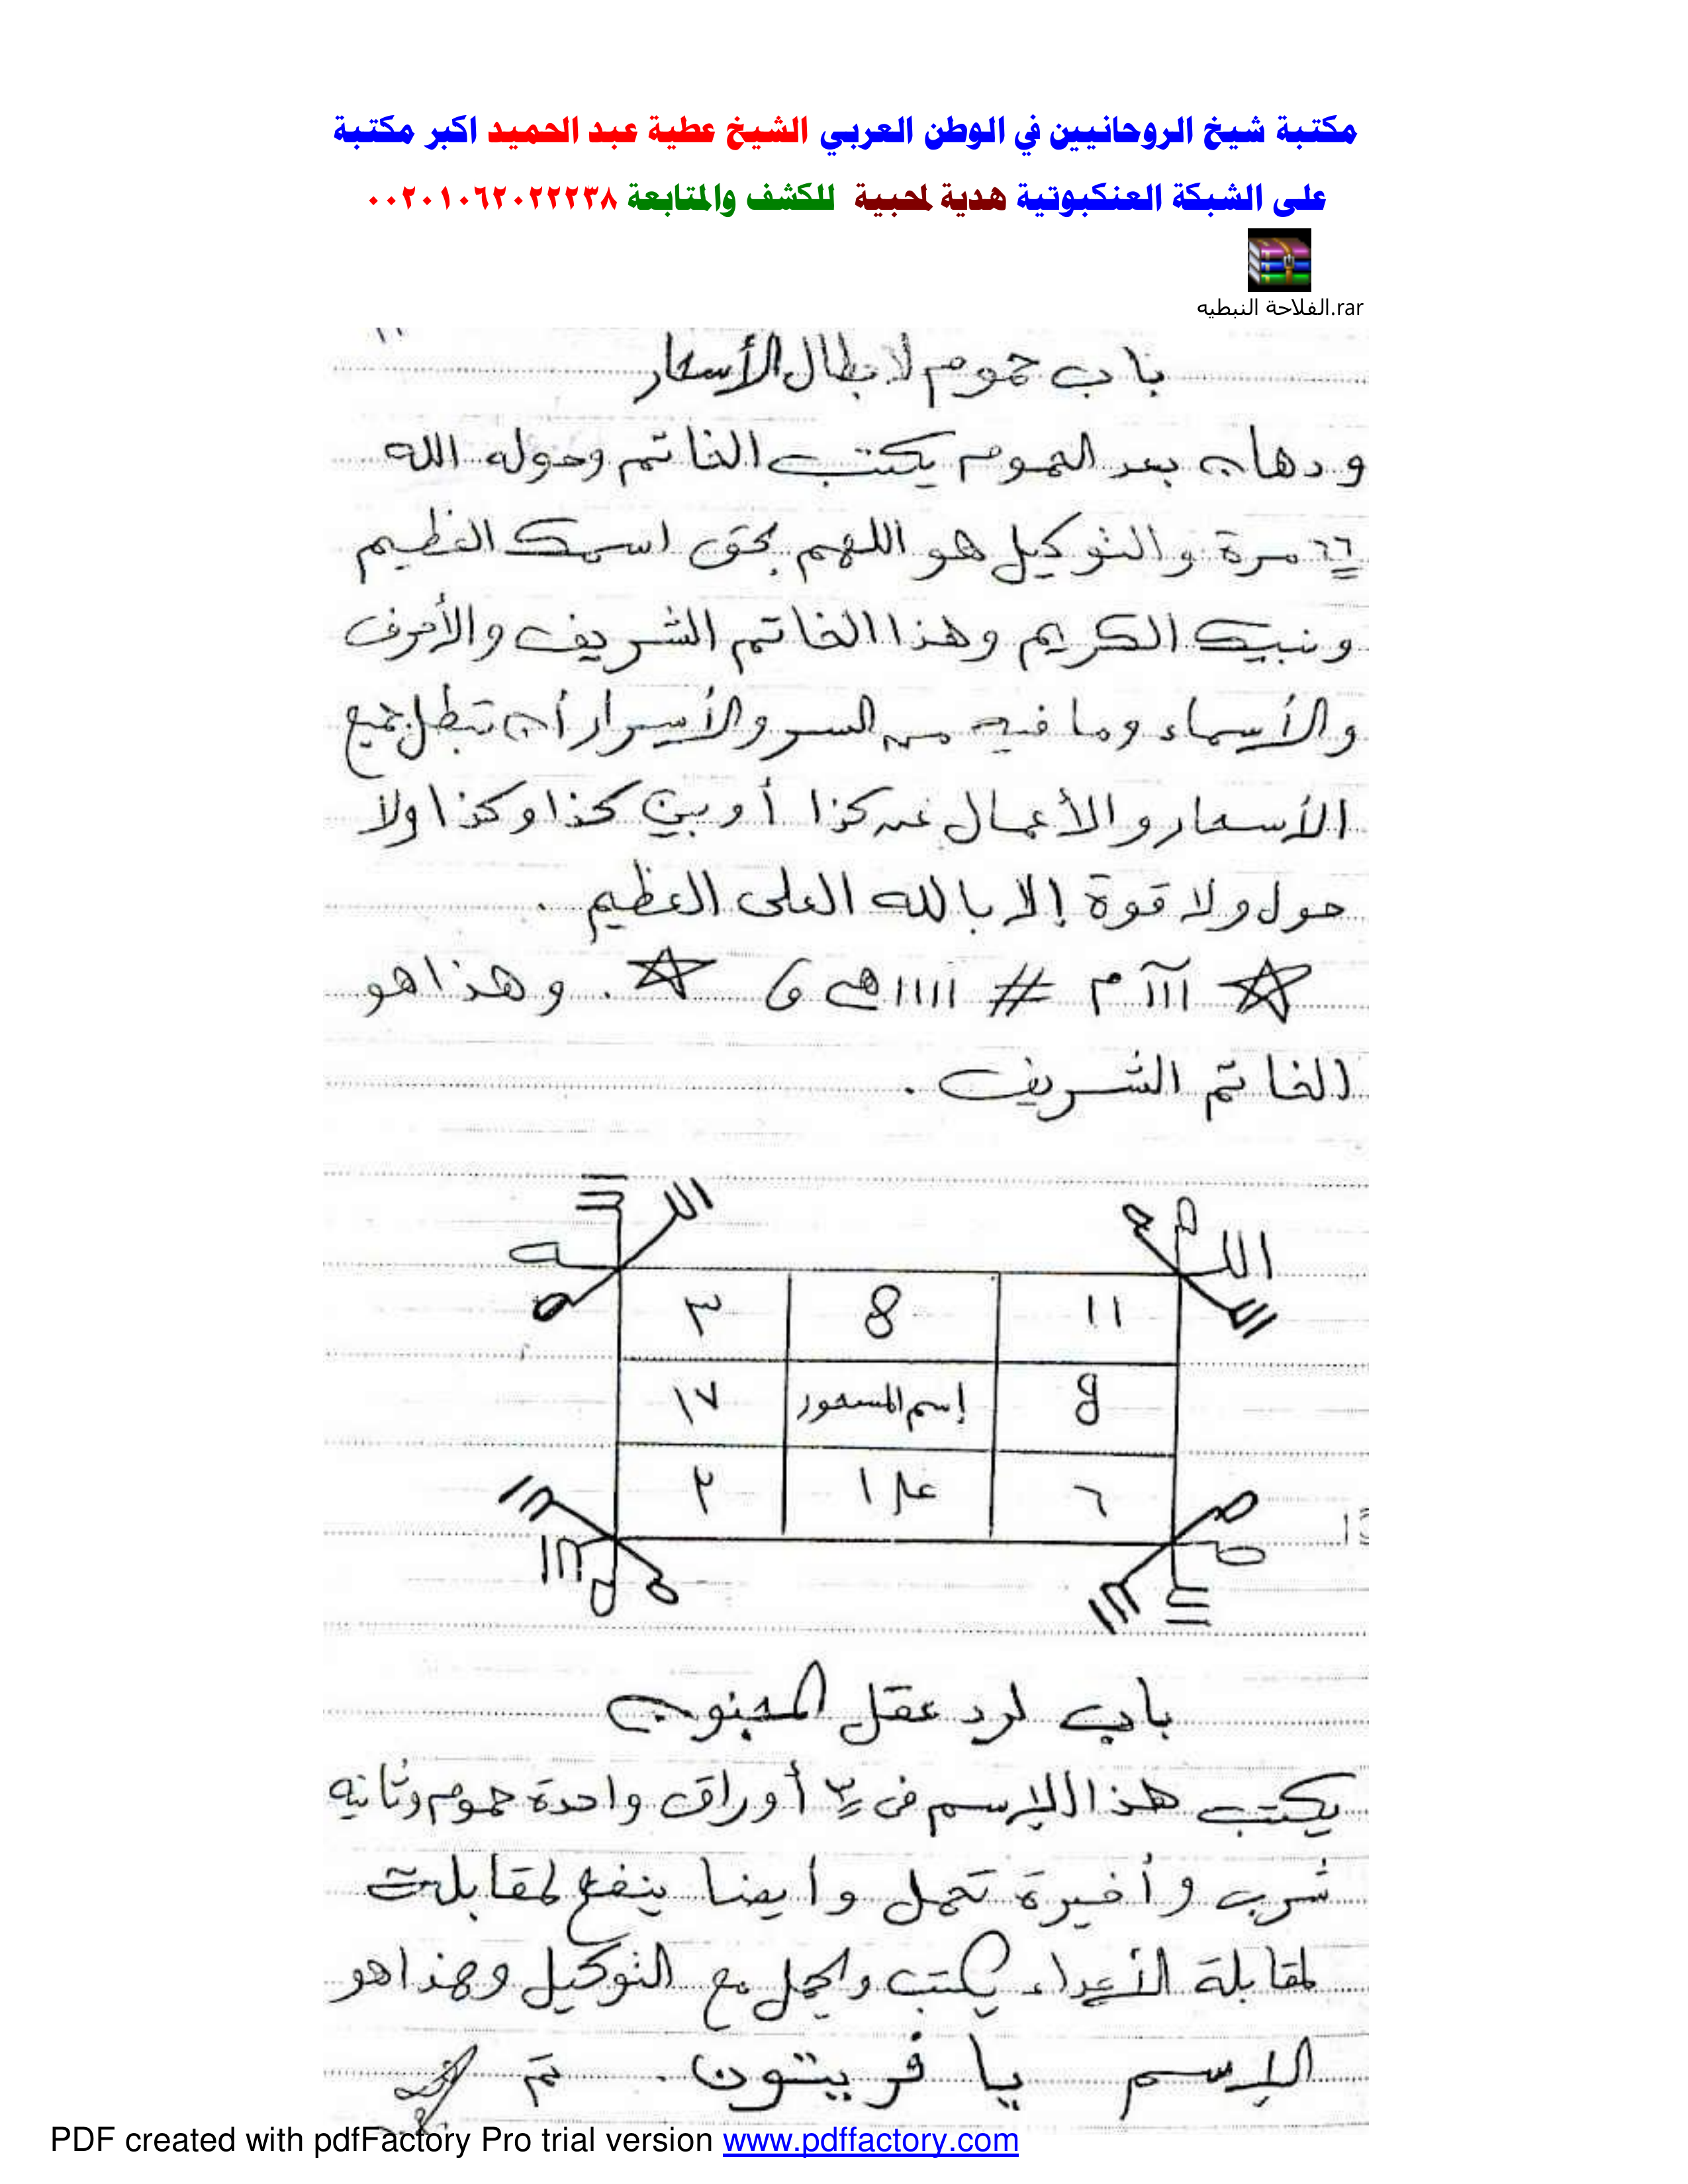 مكتبة شيخ الروحانيين في الوطن العربي الشيخ عطية عبد الحميد اكبر مكتبة
على الشبكة العنكبوتية هدية لمحبية للكشف والمتابعة ٠٠٢٠١٠٦٢٠٢٢٢٣٨
الفلاحة النبطيه.rar
باب حموم لابطال الأسحار
ودهان بعد الحموم يكتب الخاتم وحوله الله
٦٦ مرة والتوكيل هو اللهم بحق اسمك العظيم
ونبيك الكريم وهذا الخاتم الشريف والأحرف
والأسماء وما فيه من السر والأسرار أن تبطل جميع
الأسحار والأعمال عن كذا أو بين كذا وكذا ولا
حول ولا قوة إلا بالله العلى العظيم .
☆ آآآ م # ١١١١ هـ و ☆ . وهذا هو
الخاتم الشريف .
الله الله
١١ 8 ٣
و إسم المسحور ١٧
٦ ٢
باب لرد عقل المجنون
يكتب هذا الإسم فى ٣ أوراق واحدة حموم وثانيه
شرب وأخيرة تحمل وايضا ينفع لمقابلت
لمقابلة الأعداء يكتب ويحمل مع التوكيل وهذا هو
الإسم يا فريتون . تم
PDF created with pdfFactory Pro trial version www.pdffactory.com